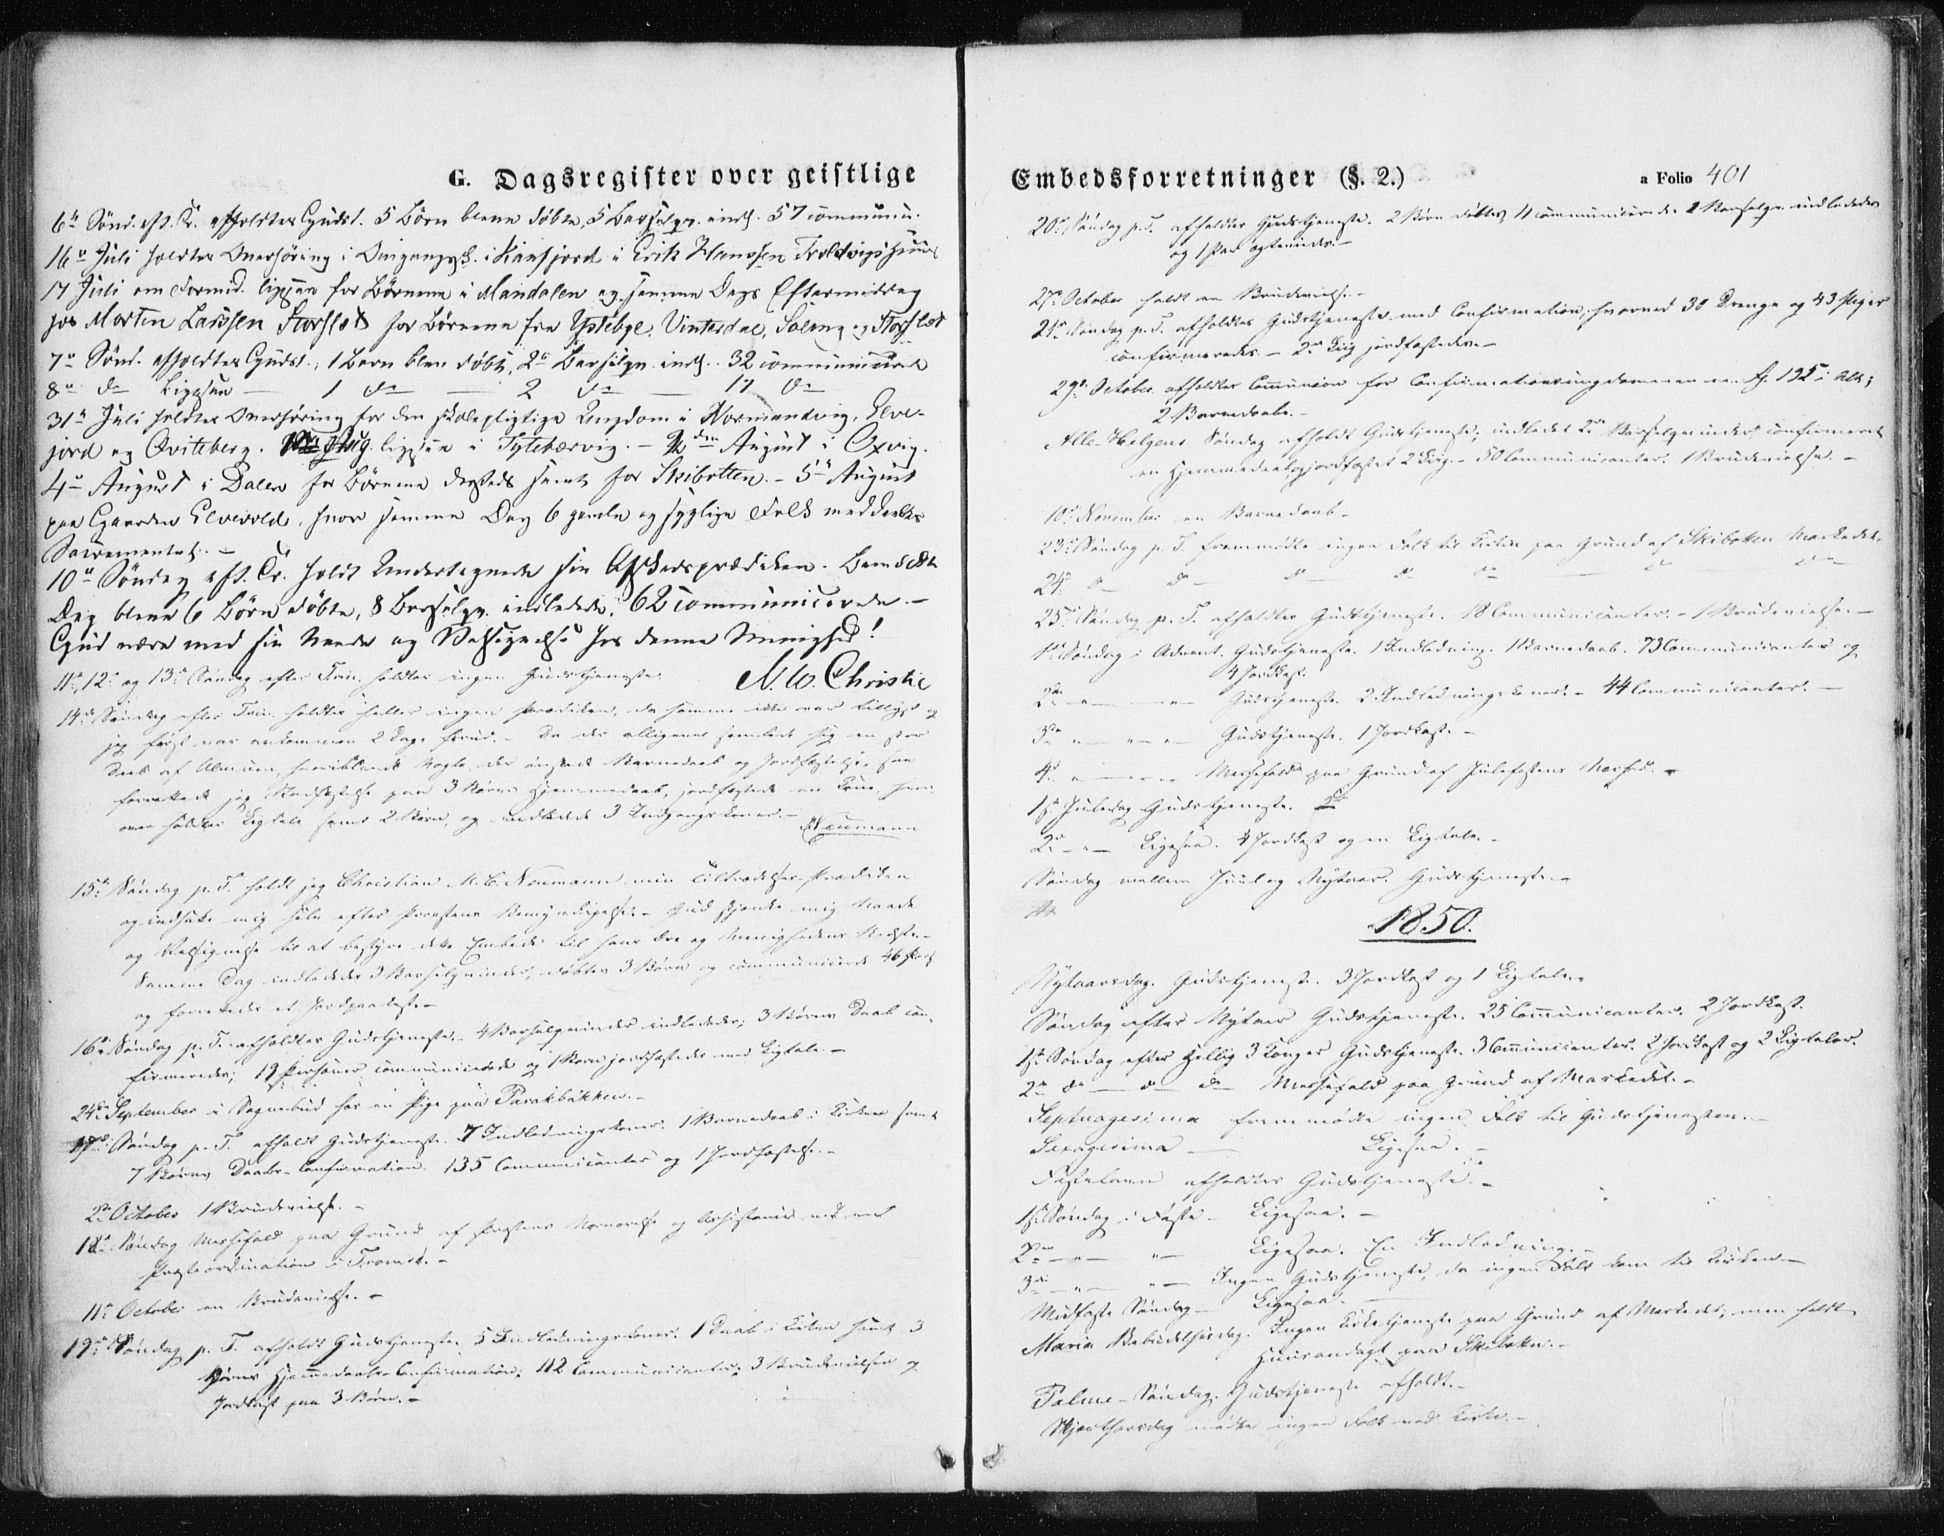 G. Dagsregister over geistlige
6te Sönd. eft. Tr. affholdtes Gudst. 5 Börn bleve döbte, 5 Barselqv. indl. 57 communic.
16de Juli holdtes Overhöring i i Kaafjord i Erik Hanssen Troldvigs Huus
17 Juli om Formid. ligesaa for Börnene i Mandalen og samme Dags Eftermiddag
hos Morten Larssen Storslet for Börnene fra Ystebye, Vinterdal, Saleng og Storslet
7de Sönd. affholdtes Gudst., 1 Barn blev döbt, 2 Barselqv. indl. 32 communicerede
8de do Ligesaa — 1 do — 2 do — 17 do
31te Juli holdtes Overhöring for den skolepligtige Ungdom i Normandvig, Elve-
jord og Qviteberg. ligesaa i Tytebærvig. — 2den August i Oxvig.
4de August i Dalen for Börnene dersteds samt for Skibotten. — 5te August
paa Gaarden Elvevold, hvor samme Dag 6 gamle og syglige Folk meddeeltes
Sacramentet. —
10de Söndag eft. Tr. holdt Undertegnede sin Afskedsprædiken. Bemeldte
Dag bleve 6 Börn döbte, 8 Barselqv. indledede, 62 communicerede. —
Gud være med sin Naade og Velsignelse hos denne Menighed!
N. W. Christie
11te, 12te og 13de Söndag efter Trin. holdtes ingen Gudstjeneste.
14de Söndag efter Trin. holdtes heller ingen Prædiken, da samme ikke var tillyst og
jeg först var ankommen 2 Dage forud. — Da der alligevel samlede sig en stor
Deel af Almuen, hvoriblandt Nogle, der önskede Barnedaab og Jordfæstelse, saa
forrettede jeg Stadfæstelse paa 3 Börns Hjemmedaab, jordfæstede en Kone, hvor-
over holdtes Ligtale samt 2 Börn, og indledede 3 Indgangskoner. —
Neumann
15de Söndag p. T. holdt jeg Christian M. C. Neumann min Tiltrædelses-Prædiken
og indsatte mig selv efter Provstens Bemyndigelse. — Gud skjenke mig Naade
og Velsignelse til at bestyre dette Embede til hans Ære og Menighedens Bedste. —
Samme Dag indlededes 3 Barselqvinder, döbtes 3 Börn og communicerede 46 Pers.
og forrettedes et Jordpaakast. —
16de Söndag p. T. afholdtes Gudstjeneste. 4 Barselqvinder indlededes; 3 Börns Daab con-
firmeredes; 19 Personer communicerede og 1 Barn jordfæstedes med Ligtale. —
24de September i Sognebud hos en Pige paa Parakbakken. —
17de Söndag p. T. afholdt Gudstjeneste. 7 Indledningskoner. 1 Barnedaab i Kirken samt
7 Börns Daabs-Confirmation. 135 Communicanter og 1 Jordfæstelse. —
2den October 1 Brudevielse. —
18de Söndag Messefald paa Grund af Præstens Nærværelse og Assistence ved en
Præsteordination i Tromsö. —
11te October en Brudevielse. —
19de Söndag p. T. afholdt Gudstjeneste. 5 Indledningskoner. 1 Daab i Kirken samt 3
Börns Hjemmedaabs-Confirmation; 112 Communicanter; 3 Brudevielser og
Jordkast paa 3 Börn. —
Embedsforretninger (§. 2.) a Folio 401
20de Söndag p. T. afholdtes Gudstjeneste. 2 Börn döbtes, 11 communicerede. 2 Barselqv. indlededes
og 1 Par ægteviedes. —
27de October holdt en Brudevielse. —
21de Söndag p. T. afholdtes Gudstjeneste med Confirmation, hvorved 30 Drenge og 43 Piger
confirmeredes — 2de Liig jordfæstedes. —
29de October afholdtes Communion for Confirmationsungdommen 125 i Alt;
2 Barnedaabe. —
Alle-Helgens Söndag afholdt Gudstjeneste; indledet 2de Barselqvinder, confirmeret
en Hjemmedaab, jordfæstet 2 Liig. — 50 Communicanter. 1 Brudevielse. —
10de November en Barnedaab. —
23de Söndag p. T. fremmödte ingen Folk til Kirken paa Grund af Skibotten Markedet.
24de do — do — do — do — do — do —
25de Söndag p. T. afholdtes Gudstjeneste. 18 Communicanter. — 1 Brudevielse. —
1ste Söndag i Advent. Gudstjeneste. 1 Indledning. 1 Barnedaab. 73 Communicanter og
4 Jordkast.
2den — — Gudstjeneste. 2 Indledningskoner. — 44 Communicanter. —
3de — — Gudstjeneste. 1 Jordkast. —
4de — — Messefald paa Grund af Julefestens Nærhed. —
1ste Juledag Gudstjeneste.
2den — Ligesaa. 4 Jordkast og en Ligtale. —
Söndag mellem Juul og Nytaar. Gudstjeneste. —
1850.
Nytaarsdag. Gudstjeneste. 3 Jordkast og 1 Ligtale. —
Söndag efter Nytaar Gudstjeneste. 25 Communicanter. 2 Jordkast.
1ste Söndag efter Hellig 3 Konger Gudstjeneste. 3 Communicanter. 2 Jordkast og 2 Ligtaler.
2den do — do do Messefald paa Grund af Markedet. —
Septuagesima fremmödte ingen Folk til Gudstjenesten. —
Sexagesima — Ligesaa. —
Fastelavn afholdtes Gudstjeneste. —
1ste Söndag i Faste — Ligesaa. —
2den — — Ligesaa. En Indledning. —
3die — — Ingen Gudstjeneste, da ingen Folk kom til Kirken. —
Midfaste Söndag — Ligesaa. —
Maria Bebudelsesdag. Ingen Kirketjeneste paa Grund af Markedet; men holdt
Huusandagt paa Skibotten. —
Palme-Söndag. Gudstjeneste afholdt. —
Skjærthorsdag mödte ingen Folk ved Kirken. —